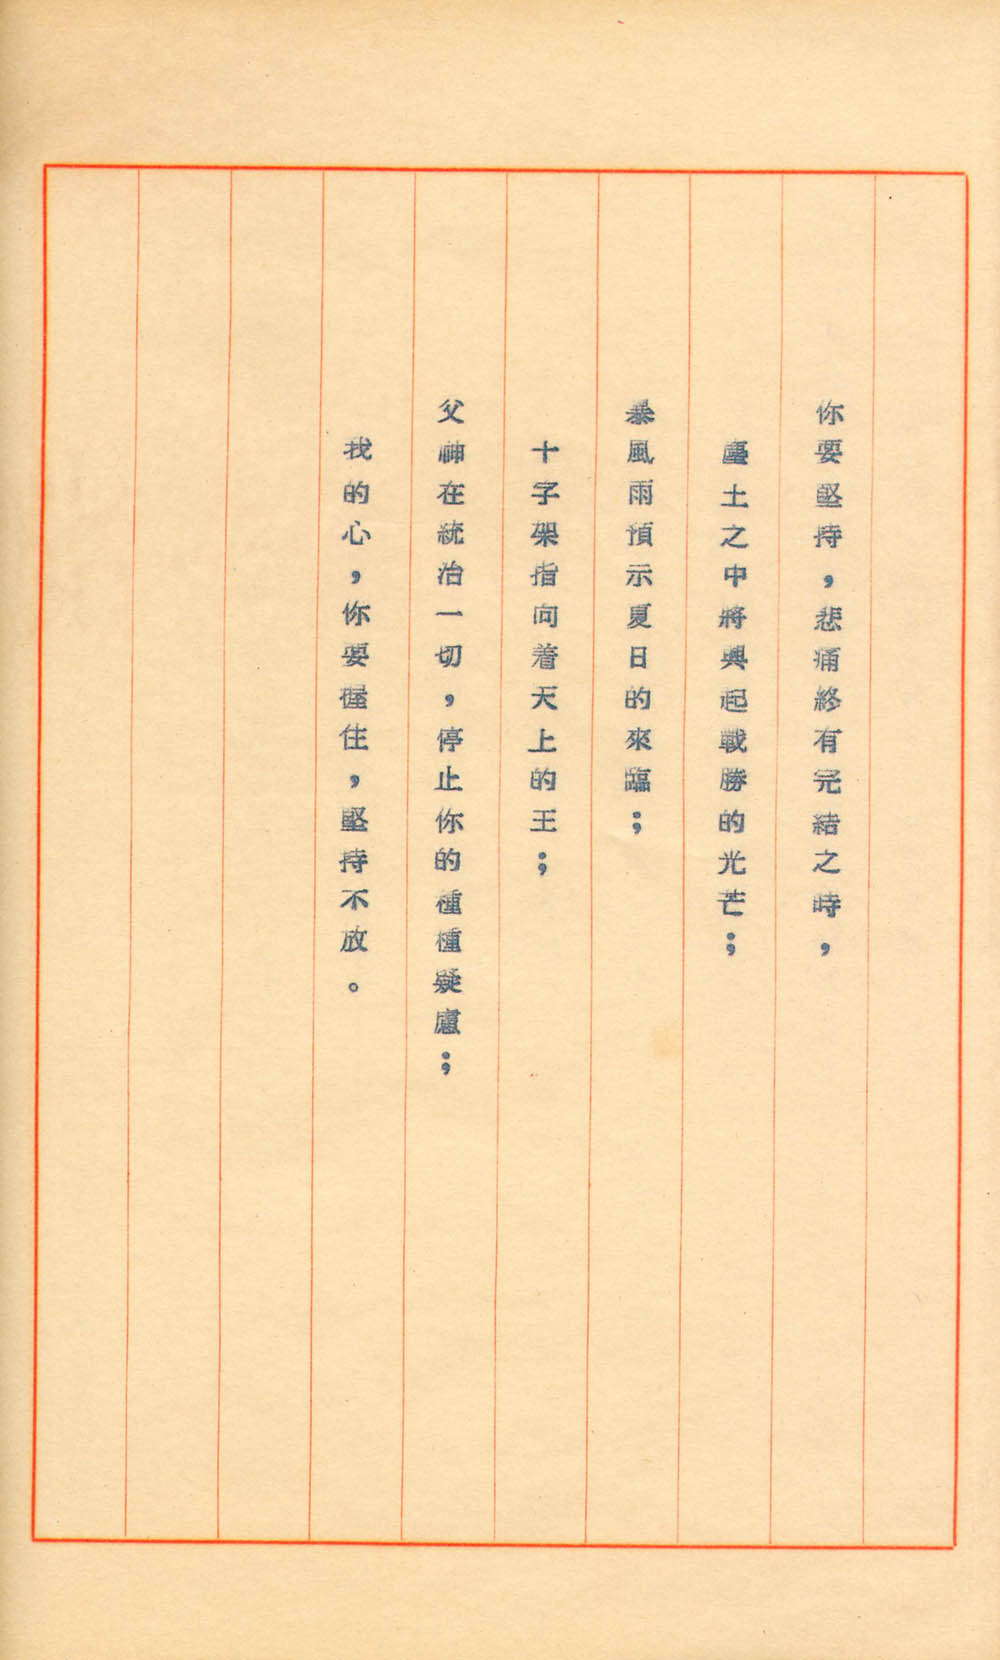 你要堅持，悲痛終有完結之時，
塵土之中將興起戰勝的光芒；
暴風雨預示夏日的來臨；
十字架指向着天上的王；
父神在統治一切，停止你的種種疑慮；
我的心，你要握住，堅持不放。